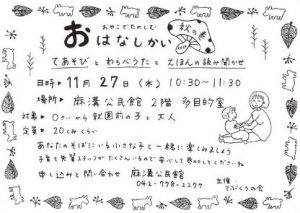 おやこでたのしむ
おはなしかい
秋の巻
てあそび と わらべうた と えほんの読み聞かせ
日時▶ 11月 27日(木) 10:30〜11:30
場所▶ 麻溝公民館 2階 多目的室
対象▶ 0さいから就園前の子と大人
定員▶ 20くみくらい
あなたのそばにいる小さな子と一緒に楽しみましょう
子育て先輩スタッフがたくさんいるので安心して参加してくださいね
申し込みと問い合わせ 麻溝公民館
042-778-2277
主催:
てぶくろの会